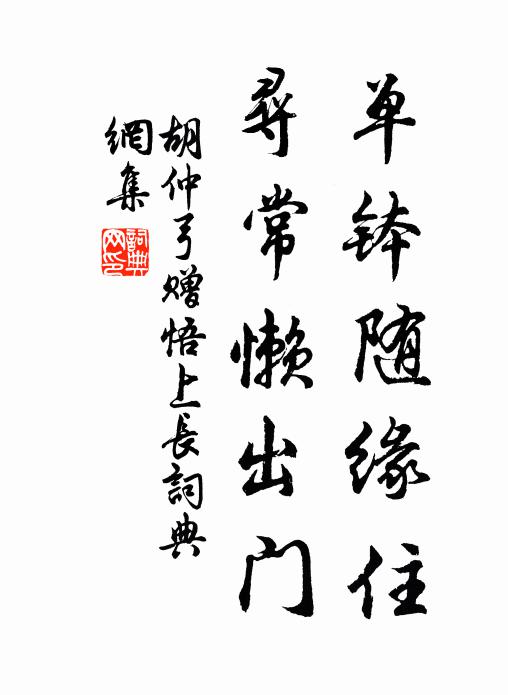 单钵随缘住
尋常懒出门
胡仲弓赠悟上長詞典
網集
詞典网印